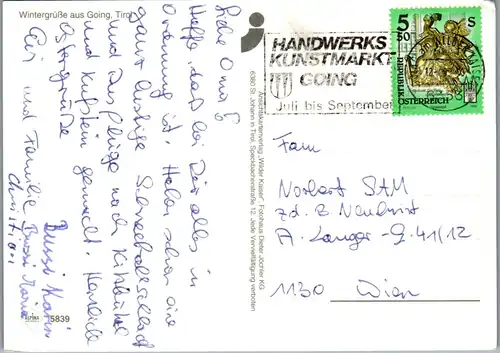 Wintergrüße aus Going, Tirol
Liebe Oma!
Hoffe, daß bei Dir alles in
Ordnung ist. Haben schon eine
ganz lustige Schneeballschlacht
und Ausflüge nach Kitzbühel
und Kufstein gemacht. Herzliche
Ostergrüße
Eur und Familie
Bussi Karin
Bussi Maria
Christian
ALPINA
5839
Ansichtskartenverlag „Wilder Kaiser“, Fotohaus Dieter Jöchler KG
6380 St. Johann in Tirol, Speckbacherstraße 12. Jede Vervielfältigung verboten
HANDWERKS
KUNSTMARKT
GOING
Juli bis September
5 S
50
REPUBLIK
ÖSTERREICH
Fam
Norbert SAM
z.d. B. Neuhirst
A. Langer-G. 41/12
1130 Wien